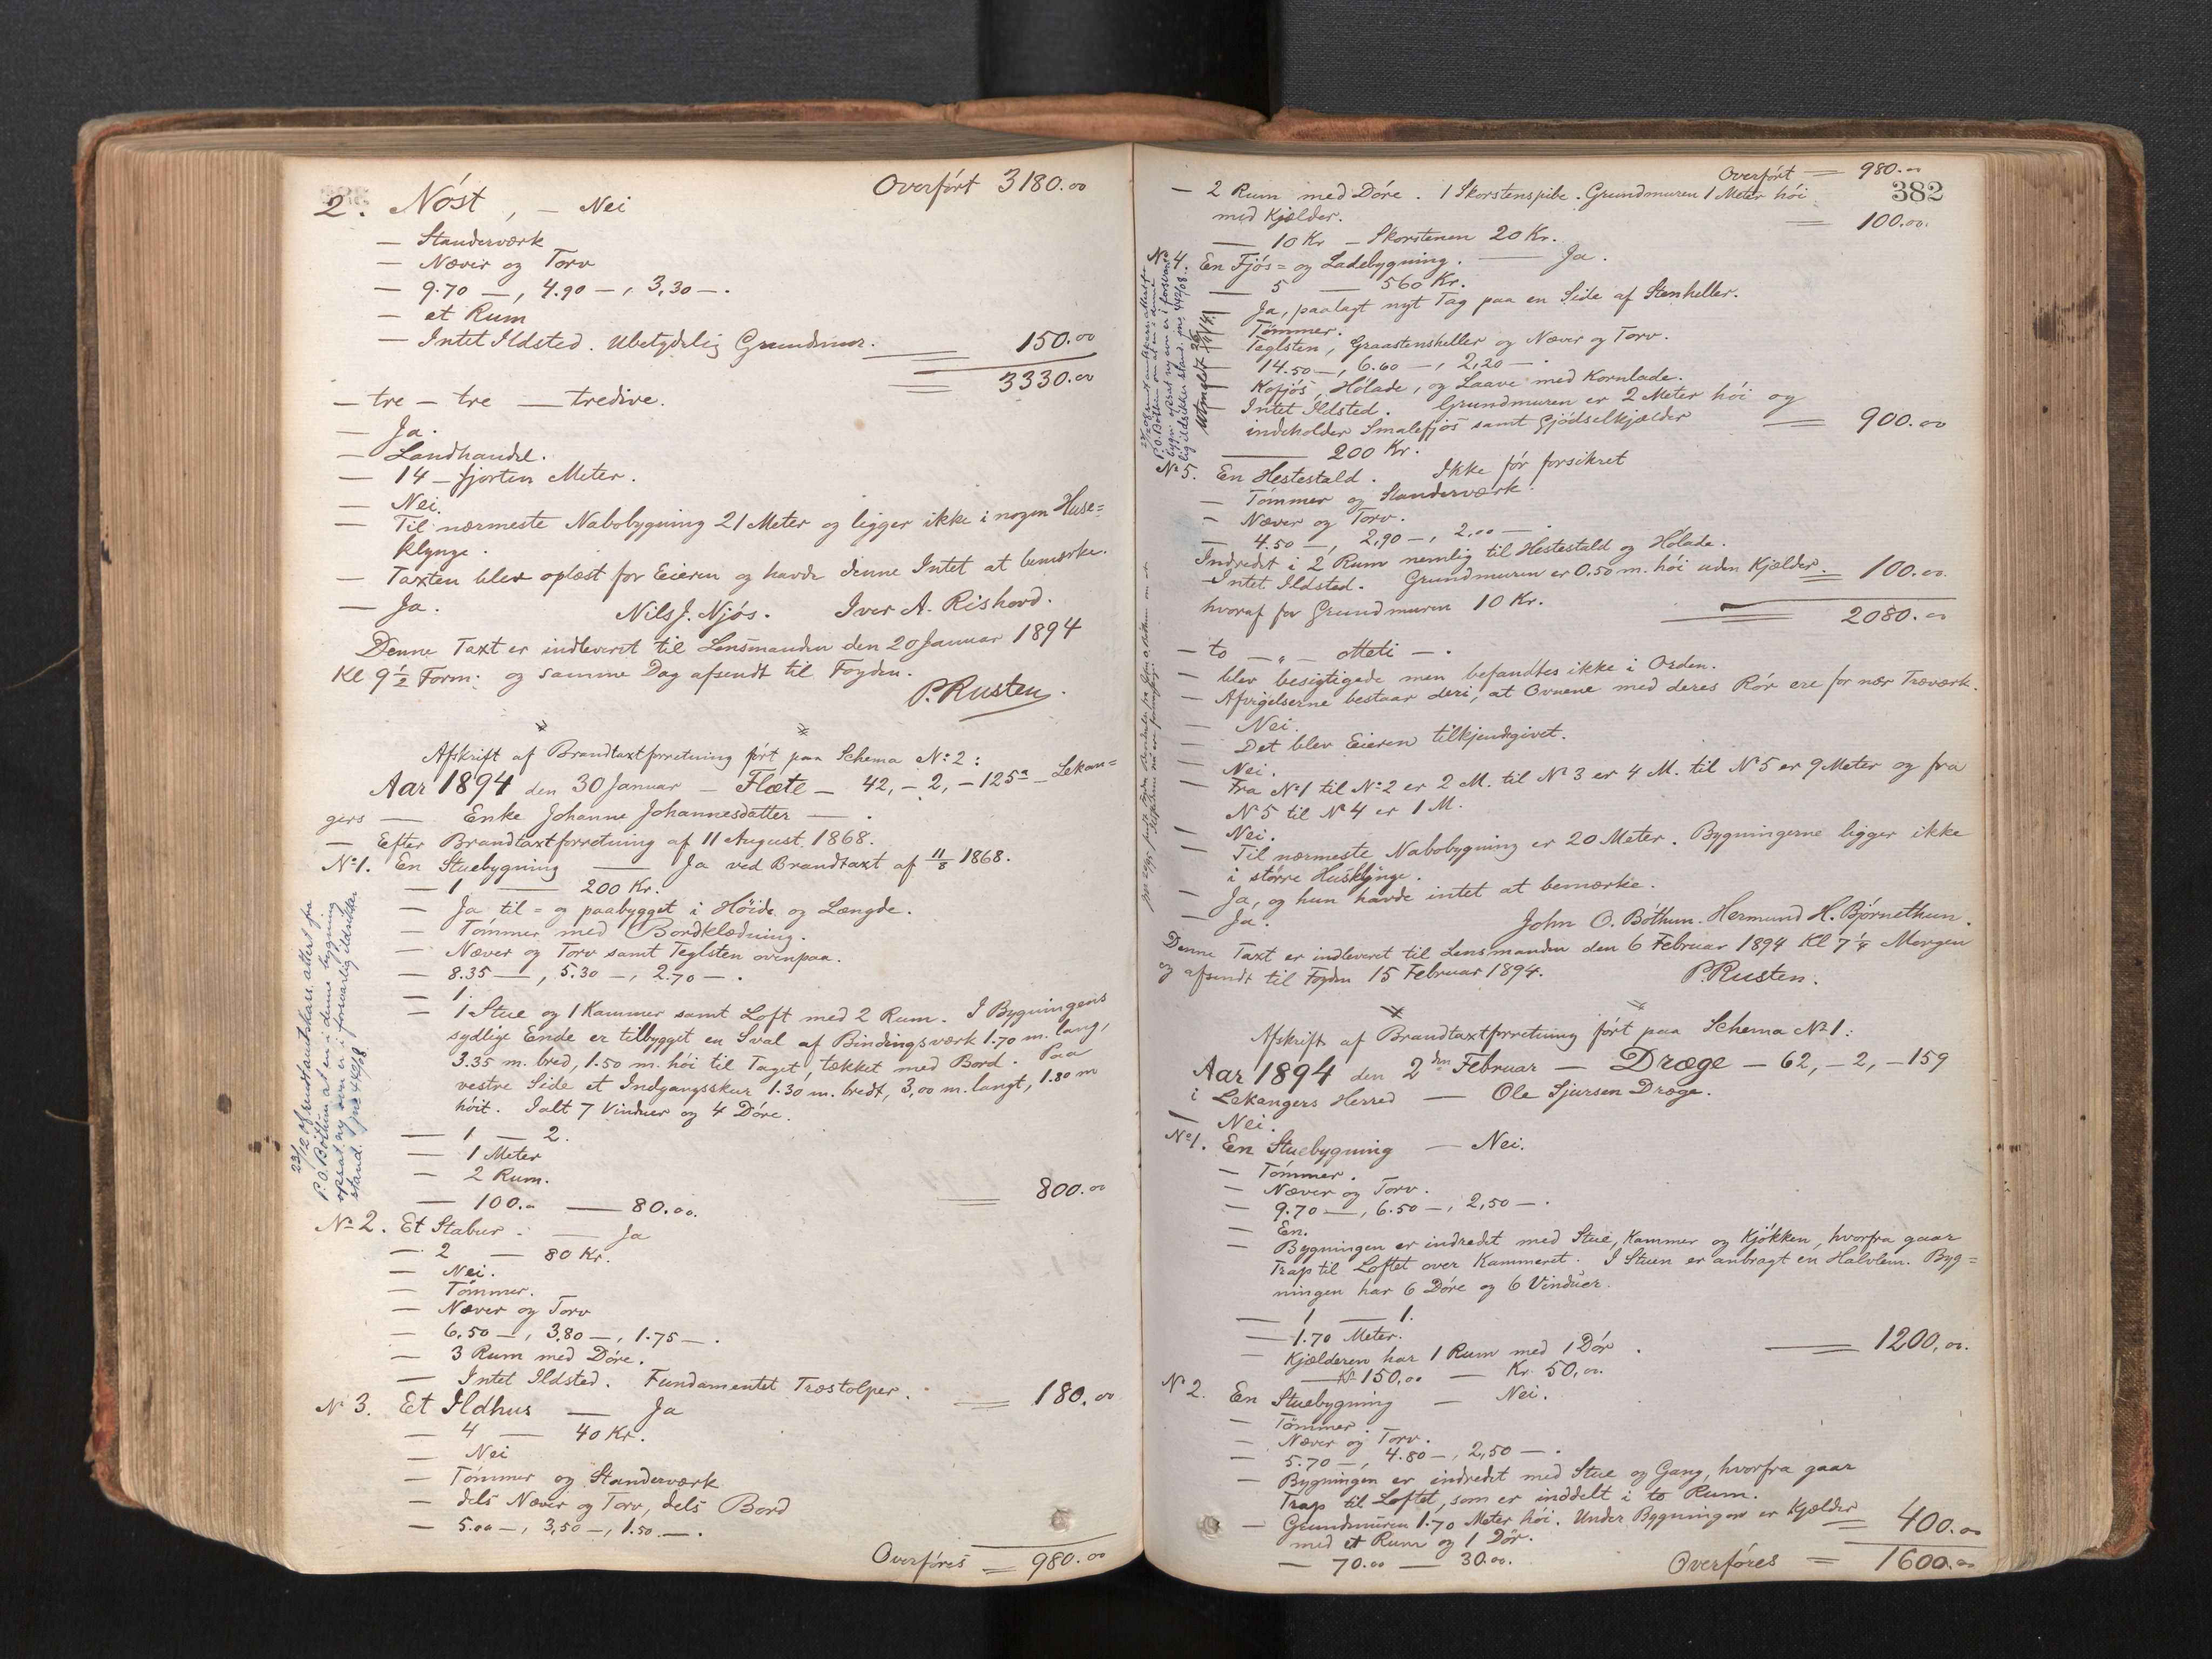 Overfört 3180.00
2. Nöst, — Nei
— Standerværk
— Næver og Torv
— 9.70 —, 4.90 —, 3,30 —.
— et Rum
— Intet Ildsted. Ubetydelig Grundmur. 150.00
3330.00
— tre — tre — tredive.
— Ja.
— Landhandel.
— 14 — fjorten Meter.
— Nei.
— Til nærmeste Nabobygning 21 Meter og ligger ikke i nogen Huse=
klynge.
— Taxten blev oplæst for Eieren og havde denne Intet at bemærke.
— Ja. Nils J. Njös. Iver A. Rishovd.
Denne Taxt er indleveret til Lensmanden den 20 Januar 1894
Kl 9½ Form: og samme Dag afsendt til Fogden.
P. Rusten.
Afskrift af Brandtaxtforretning fört paa Schema No 2:
Aar 1894 den 30 Januar — Flæte — 42, — 2, — 125a — Lekan=
gers — Enke Johanne Johannesdatter — .
— Efter Brandtaxtforretning af 11 August 1868.
No 1. En Stuebygning — Ja ved Brandtaxt af 11/8 1868.
— 1 — 200 Kr.
— Ja til= og paabygget i Höide og Længde.
— Tömmer med Bordklædning.
— Næver og Torv samt Teglsten ovenpaa.
— 8.35 —, 5.30 —, 2.70 —.
— 1.
— 1 Stue og 1 Kammer samt Loft med 2 Rum. I Bygningens
sydlige Ende er tilbygget en Sval af Bindingsværk 1.70 m. lang,
3.35 m. bred, 1.50 m. höi til Taget, tækket med Bord. Paa
vestre Side et Indgangsskur 1.30 m. bredt, 3,00 m. langt, 1.80 m
höit. Ialt 7 Vinduer og 4 Döre.
— 1 — 2.
— 1 Meter
— 2 Rum.
— 100.00 — 80.00. 800.00
23/12 08 sendt antskass. attest fra
P. O. Böthun at en i denne bygning
opsat ny ovn er i forsvarlig ildsikker
stand. jno 442/08
No 2. Et Stabur. — Ja
— 2 — 80 Kr.
— Nei.
— Tömmer.
— Næver og Torv
— 6.50 —, 3.80 —, 1.75 —.
— 3 Rum med Döre.
— Intet Ildsted. Fundamentet Træstolper. 180.00
No 3. Et Ildhus — Ja
— 4 — 40 Kr.
— Nei
— Tömmer og Standerværk
— dels Næver og Torv, dels Bord
— 5.00 —, 3,50 —, 1.50 —.
Overföres 980.00
Overfört 980.00
382
— 2 Rum med Döre. 1 Skorstenspibe. Grundmuren 1 Meter höi
med Kjælder. 100.00.
— 10 Kr — Skorstenen 20 Kr.
No 4 En Fjös= og Ladebygning. — Ja.
— 5 — 560 Kr.
Ja, paalagt nyt Tag paa en Side af Stenheller.
Tömmer.
Teglsten, Graastensheller og Næver og Torv.
14.50 —, 6.60 —, 2,20 —.
Kofjös, Hölade, og Laave med Kornlade.
Intet Ildsted. Grundmuren er 2 Meter höi og
indeholder Smalefjös samt Gjödselkjælder 900.00
— 200 Kr.
No 5. En Hestestald. Ikke för forsikret
— Tömmer og Standerværk.
— Næver og Torv.
— 4.50 —, 2,90 —, 2,00 —.
Indredet i 2 Rum nemlig til Hestestald og Hölade.
— Intet Ildsted. Grundmuren er 0.50 m. höi uden Kjælder. 100.00.
hvoraf for Grundmuren 10 Kr.
2080.00
— to — „ — otteti —.
— blev besigtigede men befandtes ikke i Orden.
— Afvigelserne bestaar deri, at Ovnene med deres Rör ere for nær Træværk.
— Nei.
— Det blev Eieren tilkjendegivet.
— Nei.
— Fra No 1 til No 2 er 2 M. til No 3 er 4 M. til No 5 er 9 Meter og fra
No 5 til No 4 er 1 M.
— Nei.
— Til nærmeste Nabobygning er 20 Meter. Bygningerne ligger ikke
i större Husklynge.
— Ja, og hun havde intet at bemærke.
— Ja. John O. Böthun. Hermund H. Björnethun.
Denne Taxt er indleveret til Lensmanden den 6 Februar 1894 Kl 7¼ Morgen
og afsendt til Fogden 15 Februar 1894. P. Rusten.
Afskrift af Brandtaxtforretning fört paa Schema No 1:
Aar 1894 den 2den Februar — Dræge — 62, — 2, — 159
i Lekangers Herred — Ole Sjursen Dræge.
— Nei.
No 1. En Stuebygning — Nei.
— Tömmer.
— Næver og Torv.
— 9.70 —, 6.50 —, 2,50 —.
— En.
— Bygningen er indredet med Stue, Kammer og Kjökken, hvorfra gaar
Trap til Loftet over Kammeret. I Stuen er anbragt en Halvlem. Byg=
ningen har 6 Döre og 6 Vinduer.
— 1 — 1.
— 1.70 Meter.
— Kjælderen har 1 Rum med 1 Dör. 1200,00.
— Kr 150,00 — Kr. 50,00.
No 2. En Stuebygning — Nei.
— Tömmer.
— Næver og Torv.
— 5.70 —, 4.80 —, 2,50 —.
— Bygningen er indredet med Stue og Gang, hvorfra gaar
Trap til Loftet, som er inddelt i to Rum.
— Grundmuren 1.70 Meter höi. Under Bygningen er Kjælder 400.00
med et Rum og 1 Dör.
— 70.00 — 30.00. Overföres 1600.00